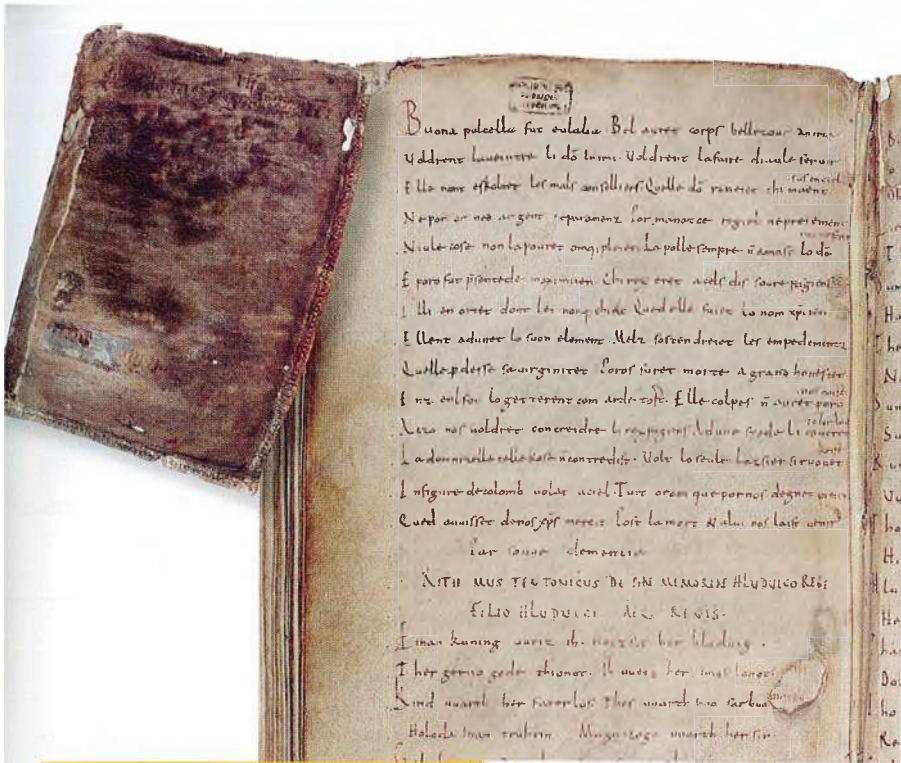 Buona pulcella fut eulalia. Bel auret corps bellezour anima
Voldrent laueintre li dõ Inimi. Voldrent lafaire diaule seruir
sus en ciel
Elle nont eskoltet les mals conselliers. Quelle dõ raneiet chi maent
Nepor or ned argent neparamenz. Por manatce regiel nepreiement
menestier
Niule cose non lapouret omqi pleier. La polle sempre ñ amast lo dõ
E poro fut p̃sentede maximiien. Chi rex eret acels dis soure pagiens
Illi en ortet dont lei nonq chielt. Qued elle fuiet lo nom xp̃iien
Ellent adunet lo suon element. Melz sostendreiet les empedementz
Quelle pdesse sauirginitet. Poros furet morte a grand honestet
nos coist
Enz enl fou lo getterent com arde tost. Elle colpes ñ auret poro
tolir lo chief
Aczo nos uoldret concreidre li rex pagiens. Adune spede li roueret
krist
Ladomnizelle celle kose ñ contredist. Volt lo seule lazsier si ruouet
Infigure decolomb uolat aciel. Tuit oram que por nos degnet preier
Qued auuisset denos xp̃s mercit Post la mort & alui nos laist uenir
Par souue clementia
RITHMUS TEUTONICUS DE MEMORIAE HLUDUICO REGE
FILIO HLUDUICI AEQ REGIS.
Einan kuning uueiz ih. Heizsit her hluduig.
Ther gerno gode thionot. Ih uueiz her imos lonot
Kind uuarth her faterlos. Thes uuarth imo sar buoz
Holoda inan truhtin. Magaczogo uuarth her sin